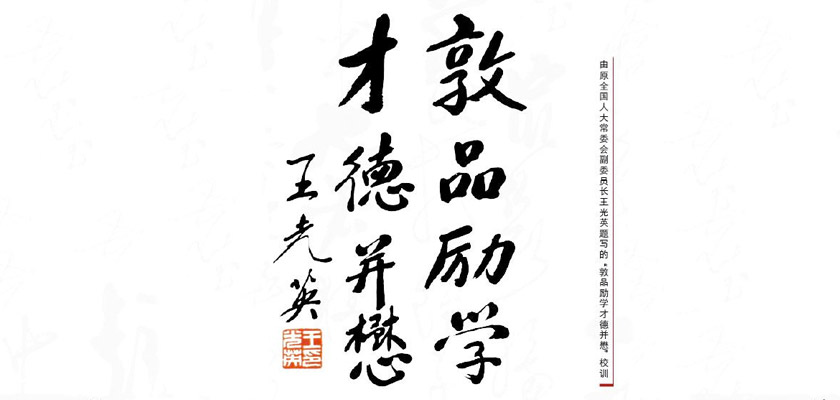 由原全国人大常委会副委员长王光英题写的“敦品励学才德并懋”校训
敦品励学
才德并懋
王光英